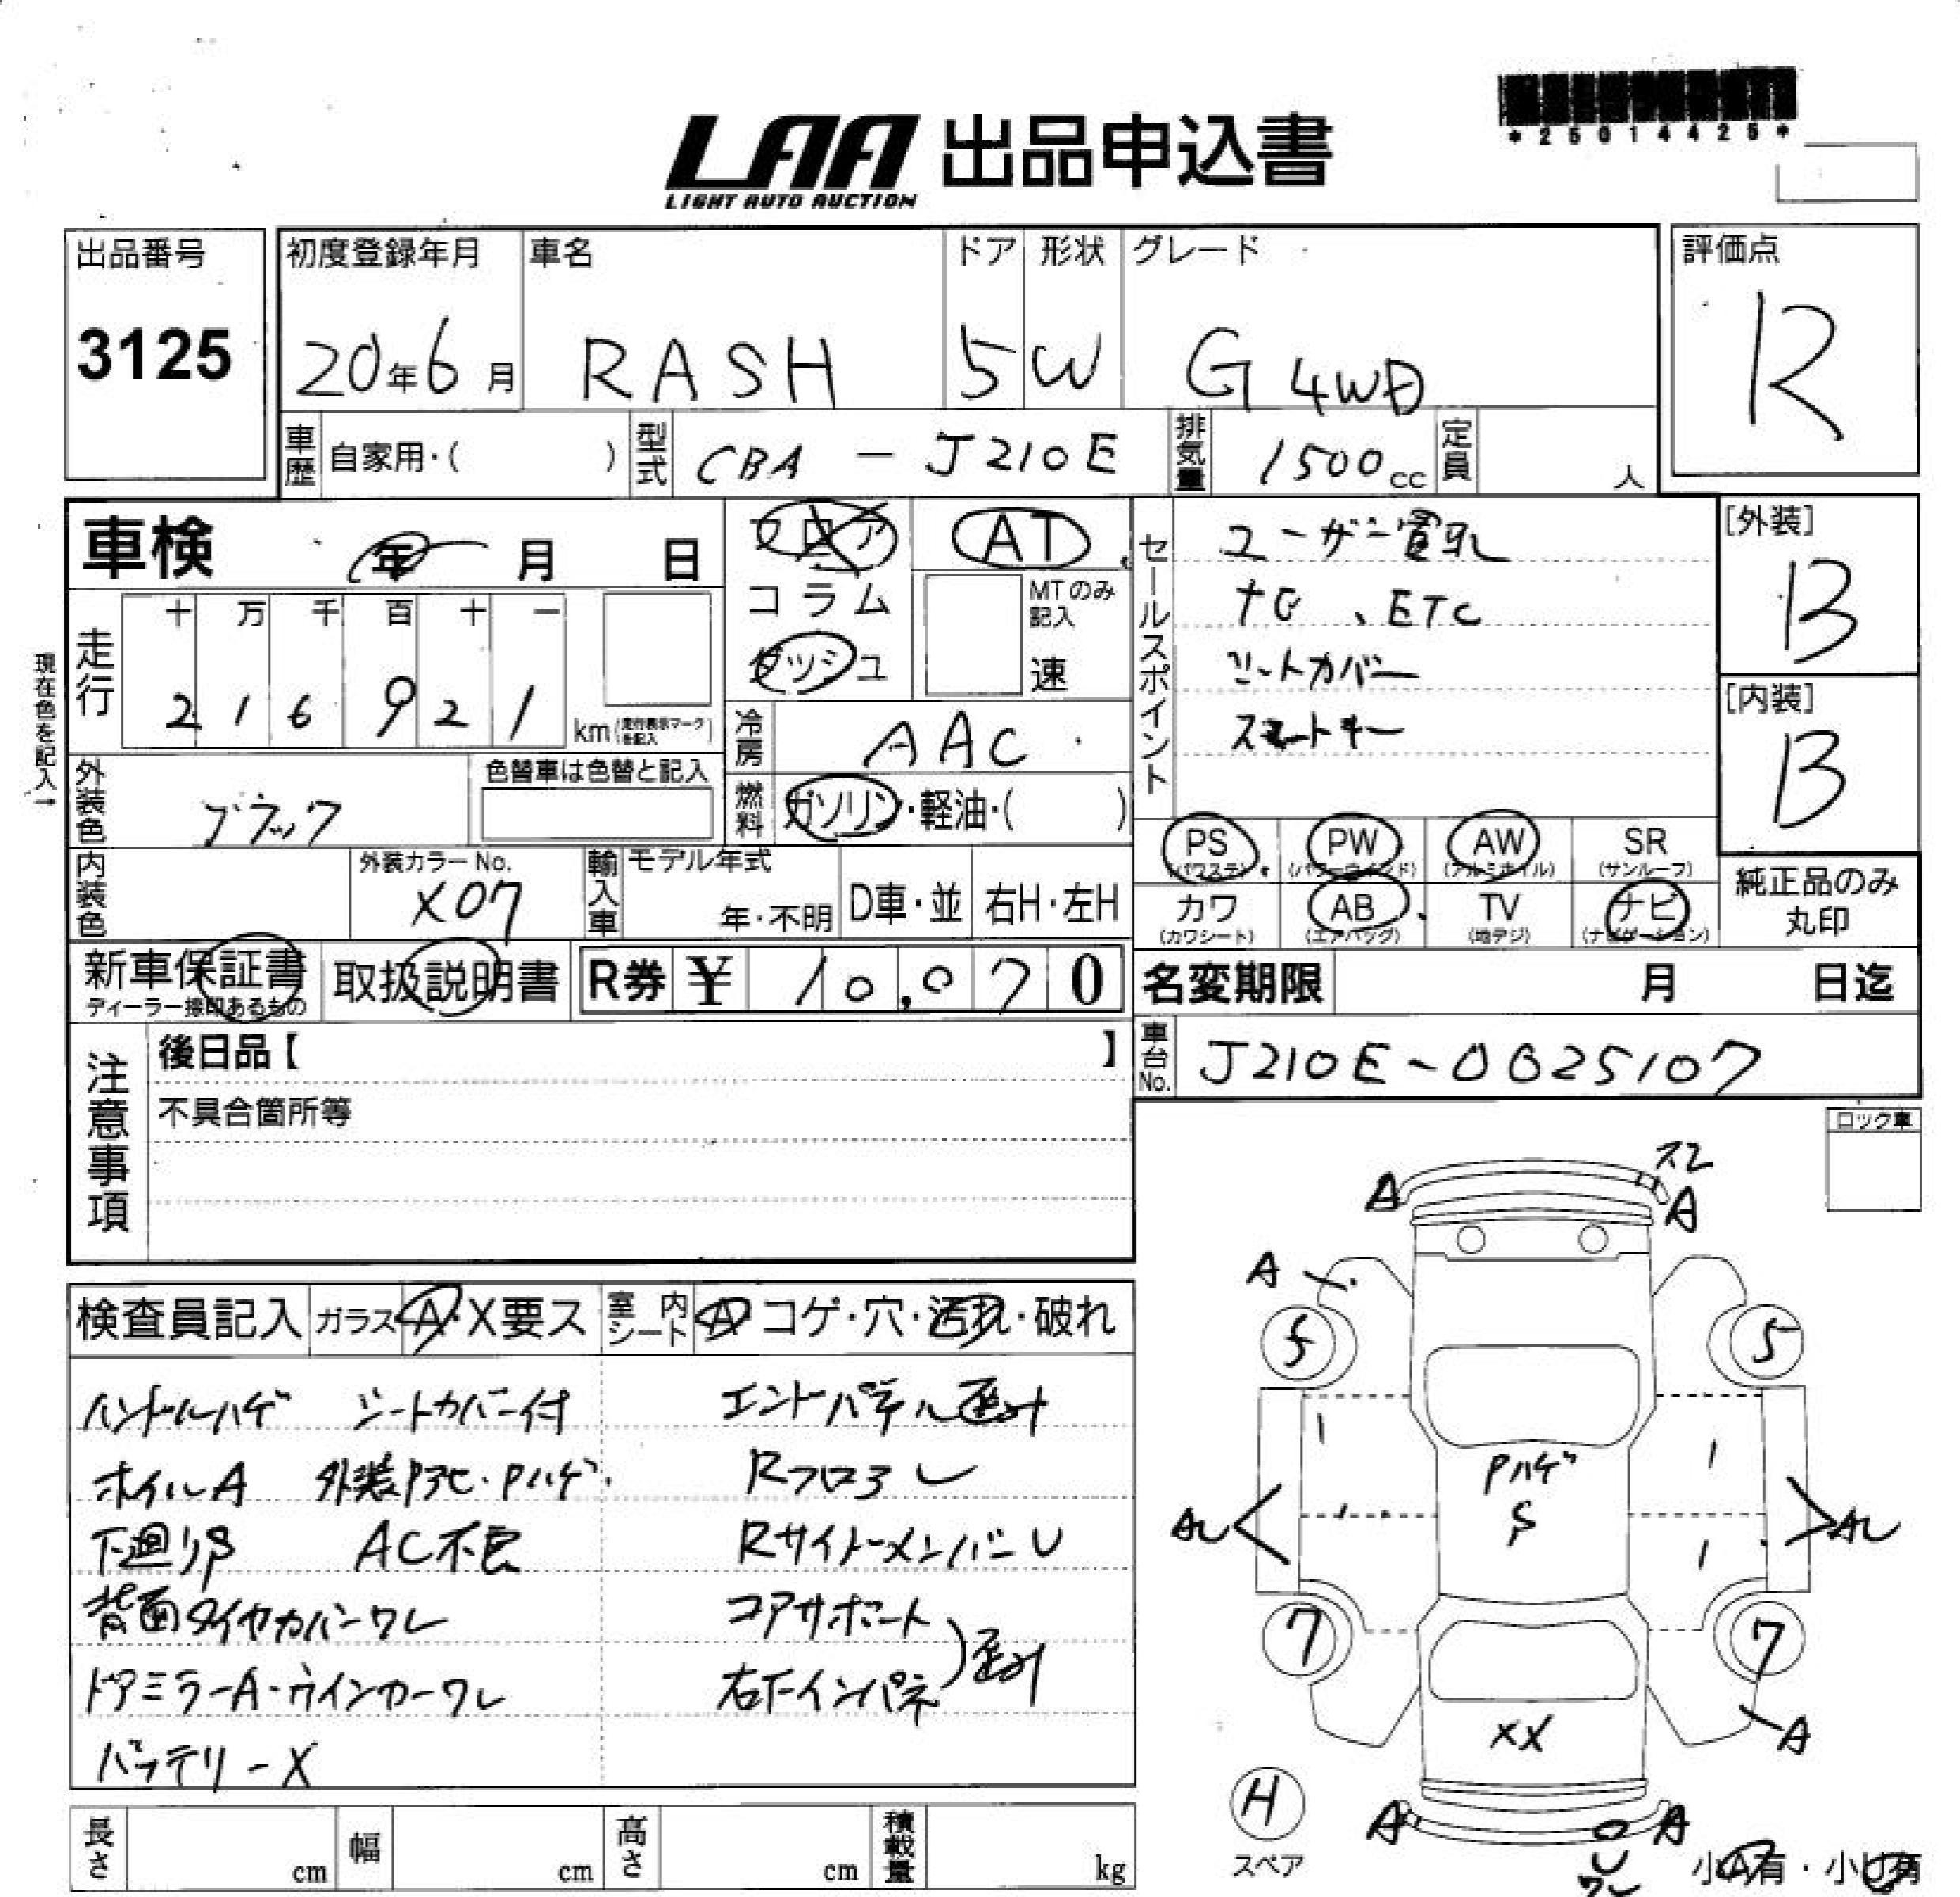 *25014425*
LAA 出品申込書
LIGHT AUTO AUCTION
出品番号 初度登録年月 車名 ドア 形状 グレード 評価点
3125 20年6月 RASH 5 W G 4WD R
車歴 自家用・( ) 型式 CBA-J210E 排気量 1500cc 定員 人
車検 年 月 日
フロア AT
コラム MTのみ記入
ダッシュ 速
セールスポイント
ユーザー買取
ナビ、ETC
シートカバー
スマートキー
[外装]
B
[内装]
B
現在色を記入→
走行 十 万 千 百 十 一
2 1 6 9 2 1 km(走行表示マークを記入)
冷房 AAC
外装色 ブラック 色替車は色替と記入
燃料 ガソリン・軽油・( )
PS AW PW SR
(パワステ) (パワーウインド) (アルミホイル) (サンルーフ)
カワ AB TV ナビ
(カワシート) (エアバッグ) (地デジ) (ナビゲーション)
純正品のみ
丸印
内装色 外装カラーNo. X07 輸入車 モデル年式 年・不明 D車・並 右H・左H
新車保証書 取扱説明書 R券 ¥ 10,070 名変期限 月 日迄
ディーラー捺印あるもの
車台No. J210E-0025107
注意事項
後日品【 】
不具合箇所等
ロック車
検査員記入 ガラス A・X要ス 室内シート A コゲ・穴・汚れ・破れ
ハンドルハゲ シートカバー付 エンドパネル歪み
ホイルA 外装Pアセ・Pハゲ Rフロア
下廻りS AC不良 RサイドメンバーU
背面タイヤカバーワレ コアサポート
ドアミラーA・ウインカーワレ 右下インパネ 歪み
バッテリーX
スレ
A A
A
5 5
Pハゲ
S
7 7
XX
A
H
スペア
A A
U
ワレ
小A有・小U有
長さ cm 幅 cm 高さ cm 積載量 kg